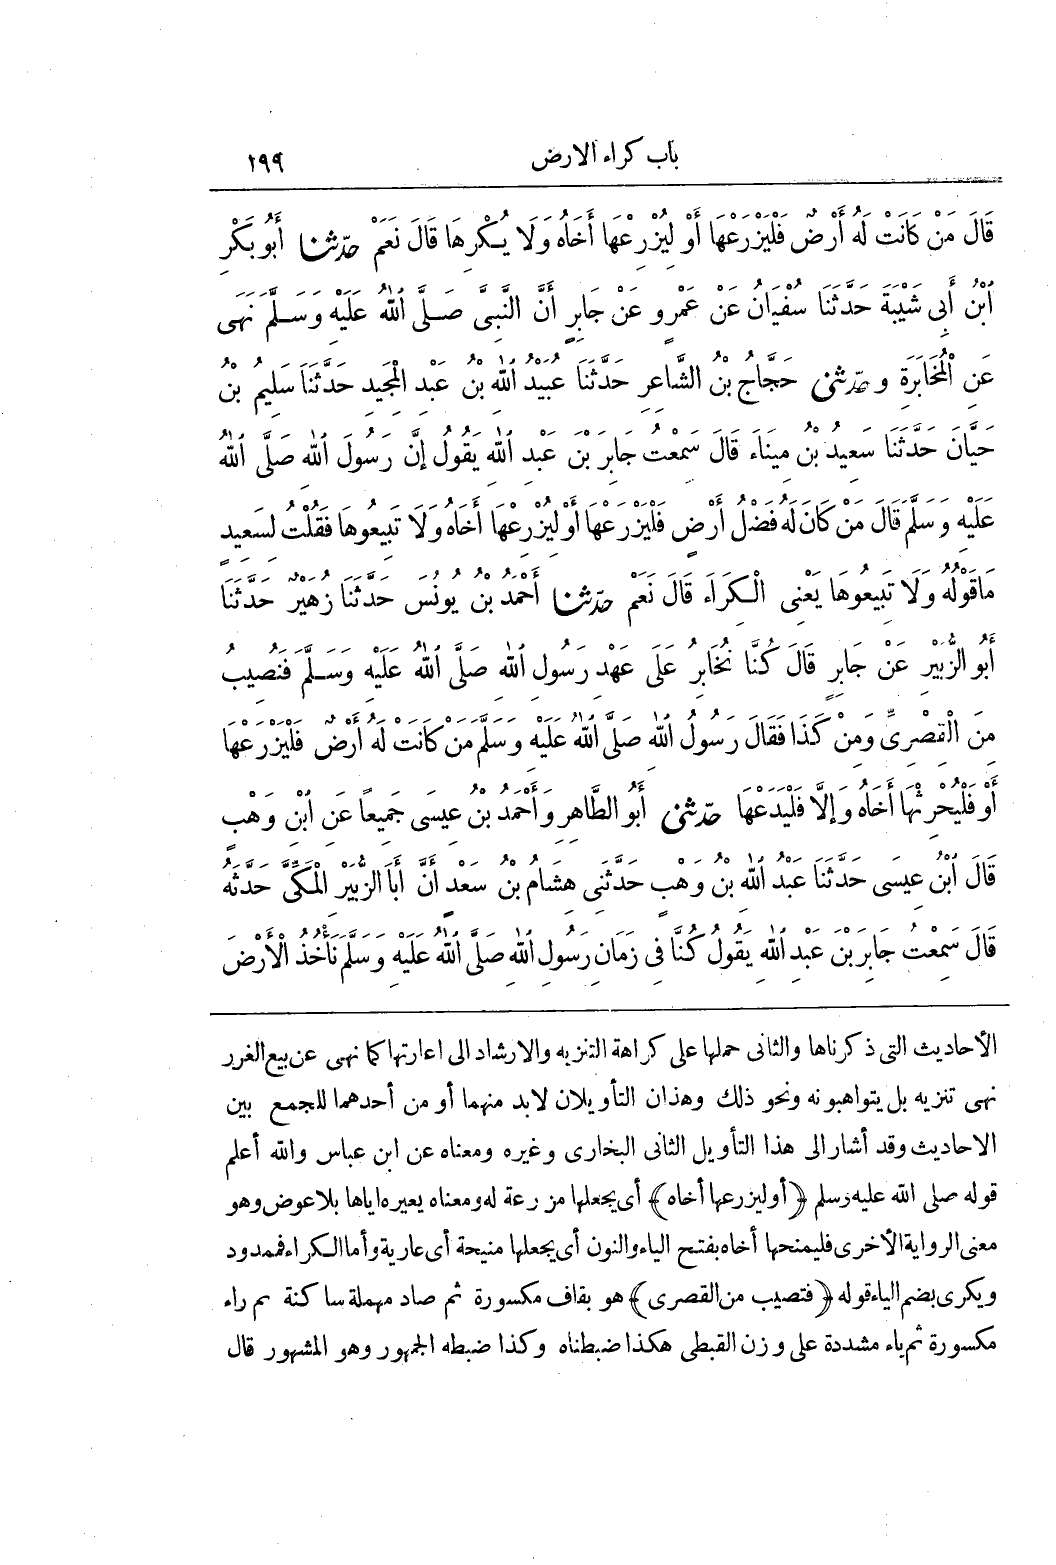 باب كراء الارض ١٩٩
قَالَ مَنْ كَانَتْ لَهُ أَرْضٌ فَلْيَزْرَعْهَا أَوْ لِيُزْرِعْهَا أَخَاهُ وَلَا يُكْرِهَا قَالَ نَعَمْ حَدَّثَنَا أَبُو بَكْرِ
ابْنُ أَبِي شَيْبَةَ حَدَّثَنَا سُفْيَانُ عَنْ عَمْرٍو عَنْ جَابِرٍ أَنَّ النَّبِىَّ صَلَّى اللهُ عَلَيْهِ وَسَلَّمَ نَهَى
عَنِ الْمُخَابَرَةِ وَحَدَّثَنِى حَجَّاجُ بْنُ الشَّاعِرِ حَدَّثَنَا عُبَيْدُ اللهِ بْنُ عَبْدِ الْمَجِيدِ حَدَّثَنَا سَلِيمُ بْنُ
حَيَّانَ حَدَّثَنَا سَعِيدُ بْنُ مِينَاءَ قَالَ سَمِعْتُ جَابِرَ بْنَ عَبْدِ اللهِ يَقُولُ إِنَّ رَسُولَ اللهِ صَلَّى اللهُ
عَلَيْهِ وَسَلَّمَ قَالَ مَنْ كَانَ لَهُ فَضْلُ أَرْضٍ فَلْيَزْرَعْهَا أَوْ لِيُزْرِعْهَا أَخَاهُ وَلَا تَبِيعُوهَا فَقُلْتُ لِسَعِيدٍ
مَا قَوْلُهُ وَلَا تَبِيعُوهَا يَعْنِى الْكِرَاءَ قَالَ نَعَمْ حَدَّثَنَا أَحْمَدُ بْنُ يُونُسَ حَدَّثَنَا زُهَيْرٌ حَدَّثَنَا
أَبُو الزُّبَيْرِ عَنْ جَابِرٍ قَالَ كُنَّا نُخَابِرُ عَلَى عَهْدِ رَسُولِ اللهِ صَلَّى اللهُ عَلَيْهِ وَسَلَّمَ فَنُصِيبُ
مِنَ الْقِصْرِىِّ وَمِنْ كَذَا فَقَالَ رَسُولُ اللهِ صَلَّى اللهُ عَلَيْهِ وَسَلَّمَ مَنْ كَانَتْ لَهُ أَرْضٌ فَلْيَزْرَعْهَا
أَوْ فَلْيُحْرِثْهَا أَخَاهُ وَإِلَّا فَلْيَدَعْهَا حَدَّثَنِى أَبُو الطَّاهِرِ وَأَحْمَدُ بْنُ عِيسَى جَمِيعًا عَنِ ابْنِ وَهْبٍ
قَالَ ابْنُ عِيسَى حَدَّثَنَا عَبْدُ اللهِ بْنُ وَهْبٍ حَدَّثَنِى هِشَامُ بْنُ سَعْدٍ أَنَّ أَبَا الزُّبَيْرِ الْمَكِّىَّ حَدَّثَهُ
قَالَ سَمِعْتُ جَابِرَ بْنَ عَبْدِ اللهِ يَقُولُ كُنَّا فِى زَمَانِ رَسُولِ اللهِ صَلَّى اللهُ عَلَيْهِ وَسَلَّمَ نَأْخُذُ الْأَرْضَ
الأحاديث التى ذكرناها والثانى حملها على كراهة التنزيه والارشاد الى اعارتها كما نهى عن بيع الغرر
نهى تنزيه بل يتواهبونه ونحو ذلك وهذان التأويلان لابد منهما أو من أحدهما للجمع بين
الاحاديث وقد أشار الى هذا التأويل الثانى البخارى وغيره ومعناه عن ابن عباس والله أعلم
قوله صلى الله عليه وسلم ﴿أو ليزرعها أخاه﴾ أى يجعلها مزرعة له ومعناه يعيره اياها بلا عوض وهو
معنى الرواية الأخرى فليمنحها أخاه بفتح الياء والنون أى يجعلها منيحة أى عارية وأما الكراء فممدود
ويكرى بضم الياء قوله ﴿فتصيب من القصرى﴾ هو بقاف مكسورة ثم صاد مهملة ساكنة ثم راء
مكسورة ثم ياء مشددة على وزن القبطى هكذا ضبطناه وكذا ضبطه الجمهور وهو المشهور قال